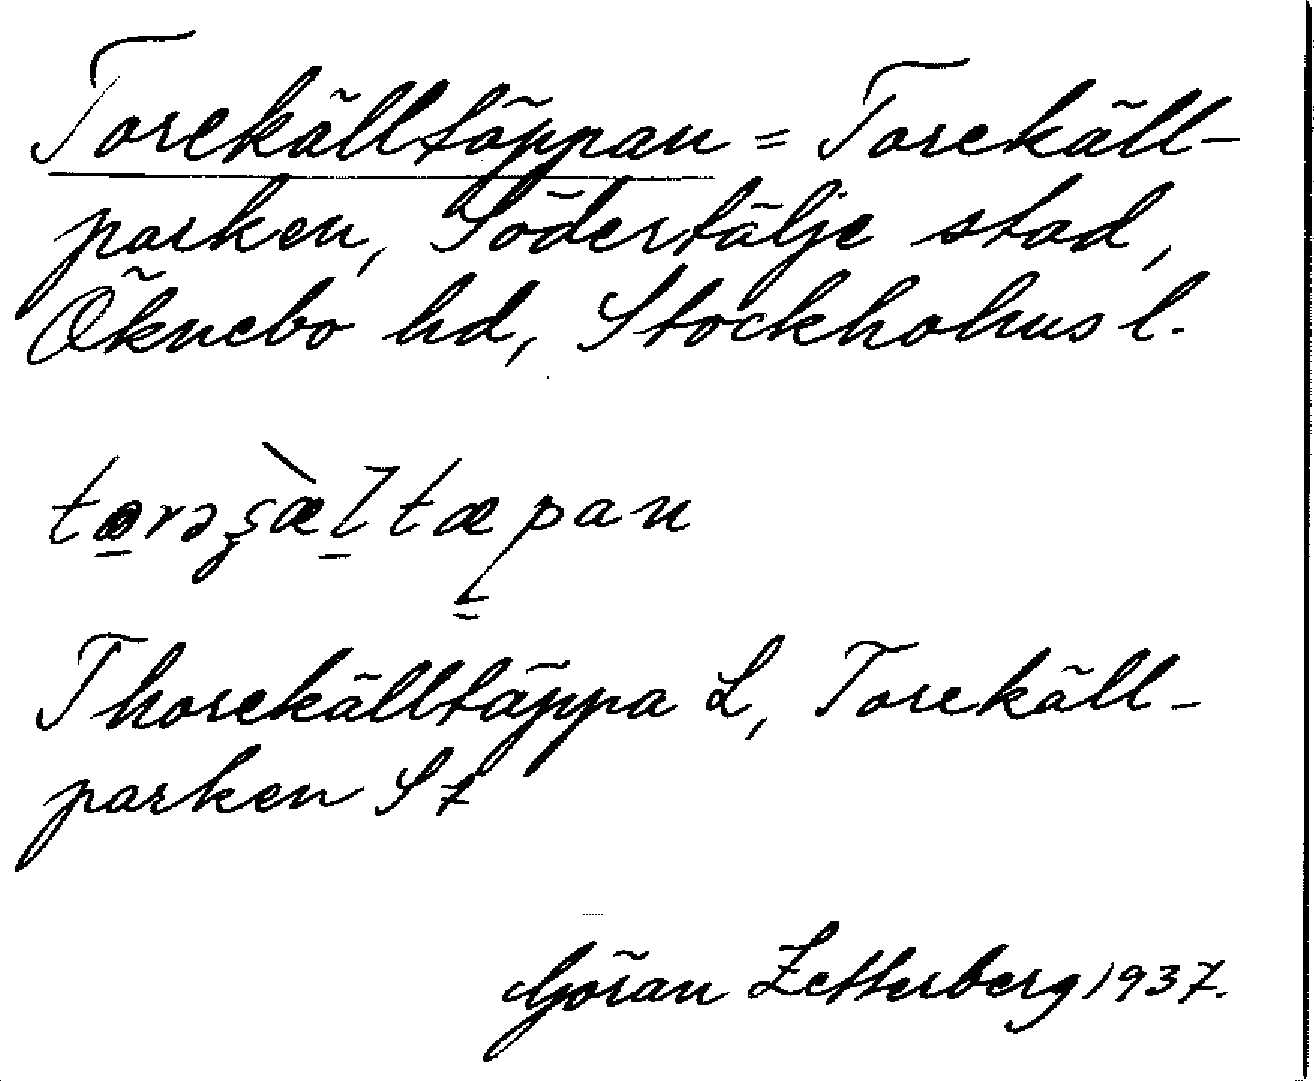 Torekälltäppan = Torekäll-
parken, Södertälje stad,
Öknebo hd, Stockholms l.
Thorekälltäppa L, Torekäll-
parken St
Göran Zetterberg 1937.